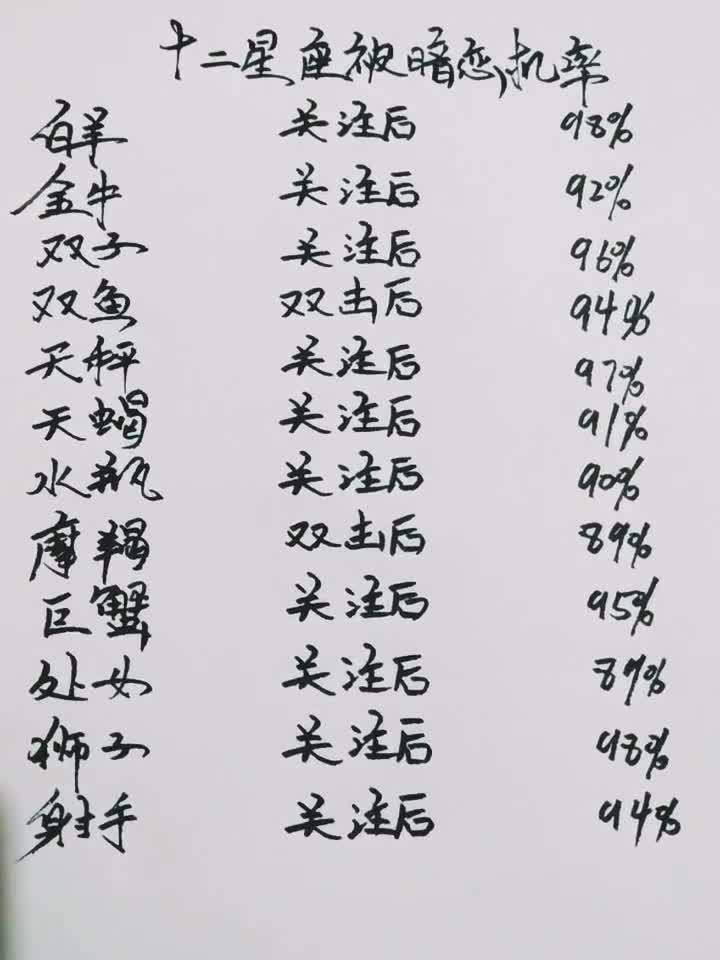 十二星座被暗恋机率
白羊 关注后 98%
金牛 关注后 92%
双子 关注后 96%
双鱼 双击后 94%
天秤 关注后 97%
天蝎 关注后 91%
水瓶 关注后 90%
摩羯 双击后 89%
巨蟹 关注后 95%
处女 关注后 89%
狮子 关注后 98%
射手 关注后 94%